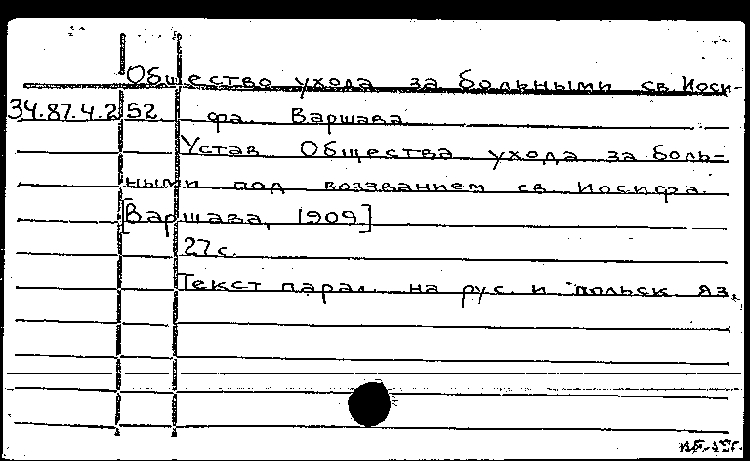 Общество ухода за больными св. Иоси-
34.87.4.252. фа. Варшава.
Устав Общества ухода за боль-
ными под воззванием св. Иосифа.
[Варшава, 1909.]
27 с.
Текст парал. на рус. и польск. яз.